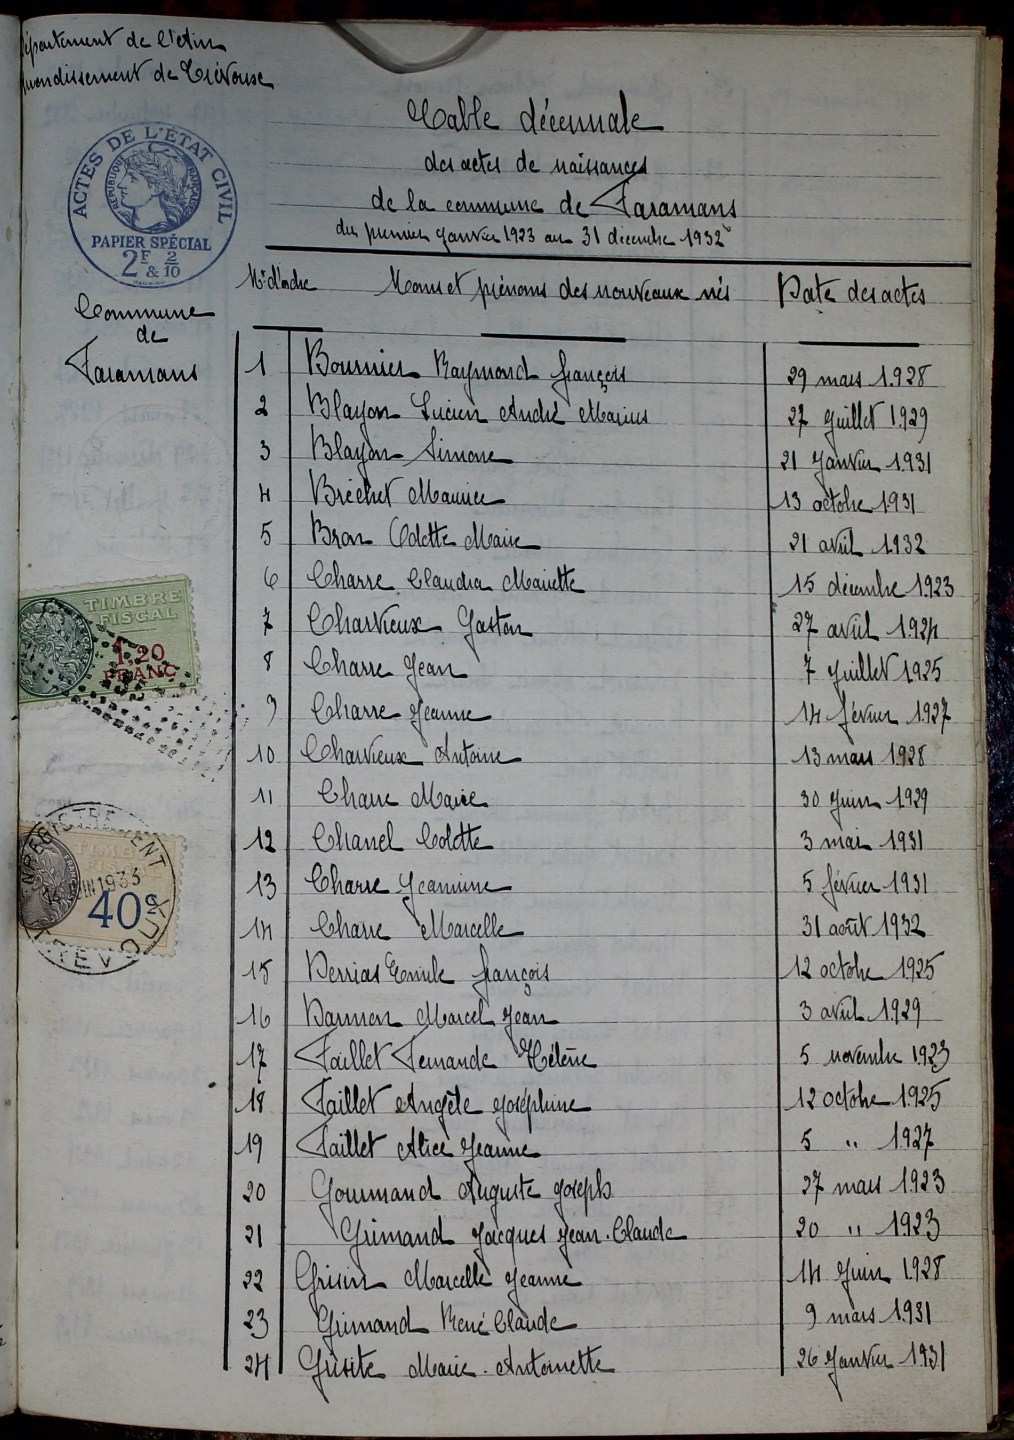 Département de l'Ain
Arrondissement de Trévoux
Table décennale
des actes de naissances
de la commune de Faramans
du premier janvier 1923 au 31 décembre 1932
ACTES DE L'ETAT CIVIL
REPUBLIQUE FRANÇAISE
PAPIER SPÉCIAL
2F 2/10
& 
Commune
de
Faramans
TIMBRE
FISCAL
1,20
FRANC
ENREGISTREMENT
14 JUIN 1933
40c
TREVOUX
N° d'ordre Noms et prénoms des nouveaux nés Date des actes
1 Bournier Raymond françois 29 mars 1928
2 Blayon Lucien André Marius 27 juillet 1929
3 Blayon Simone 21 janvier 1931
4 Bréchet Maurice 13 octobre 1931
5 Bron Odette Marie 21 avril 1932
6 Charre Claudia Mariette 15 décembre 1923
7 Charvieux Gaston 27 avril 1924
8 Charre Jean 7 juillet 1925
9 Charre Jeanne 14 février 1927
10 Charvieux Antoine 13 mars 1928
11 Charre Marie 30 juin 1929
12 Chanel Colette 3 mai 1931
13 Charre Jeannine 5 février 1931
14 Charre Marcelle 31 août 1932
15 Derrias Emile françois 12 octobre 1925
16 Darmon Marcel Jean 3 avril 1929
17 Faillet Fernande Hélène 5 novembre 1923
18 Faillet Angèle Joséphine 12 octobre 1925
19 Faillet Alice Jeanne 5 " 1927
20 Gourmand Auguste Joseph 27 mars 1923
21 Grimand Jacques Jean-Claude 20 " 1923
22 Grisin Marcelle Jeanne 14 juin 1928
23 Grimand René Claude 9 mars 1931
24 Guvite Marie-Antoinette 26 janvier 1931